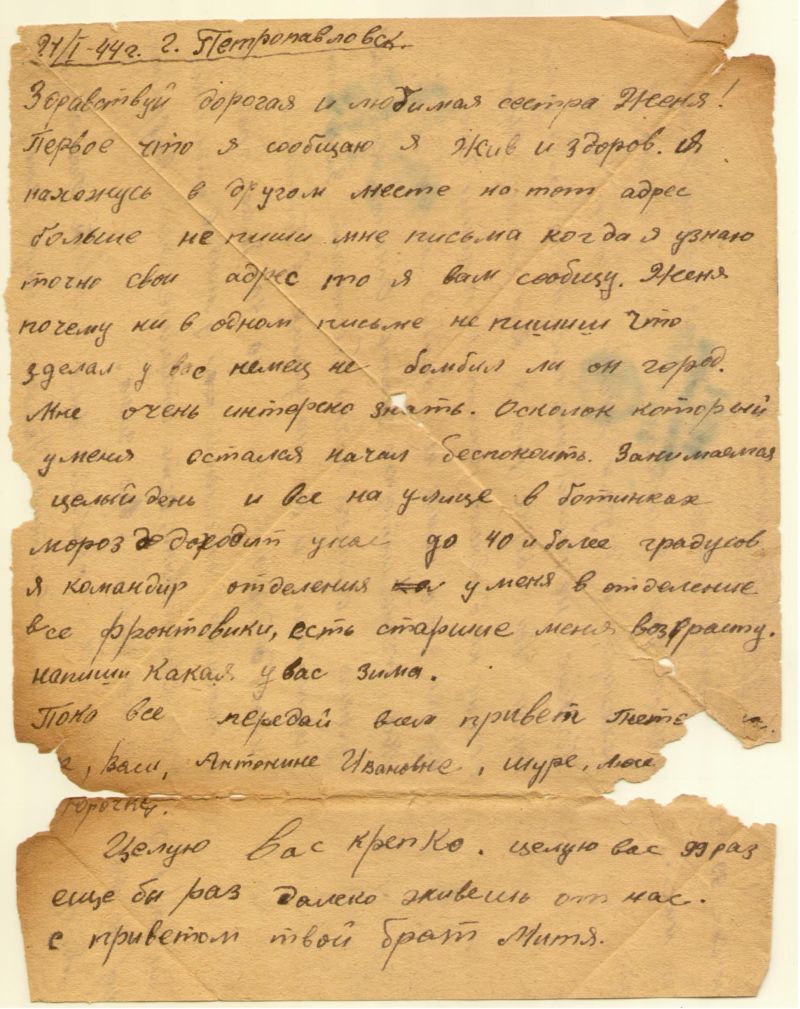 21/I-44г. г. Петропавловск.
Здравствуй дорогая и любимая сестра Женя!
Первое что я сообщаю я жив и здоров. Я
нахожусь в другом месте на тот адрес
больше не пиши мне письма когда я узнаю
точно свои адрес то я вам сообщу. Женя
почему ни в одном письме не пишиш что
зделал у вас немец не бомбил ли он город.
Мне очень интереско знать. Осколок который
у меня остался начал беспокоить. Занимаемся
целый день и все на улице в ботинках
мороз доходит у нас до 40 и более градусов
я командир отделения у меня в отделение
все фронтовики, есть старше меня возрасту.
напиши какая у вас зима.
Пока все передай всем привет тете
Васи, Антонине Ивановне, Шуре,
Целую вас крепко. целую вас 99 раз
еще бы раз далеко живешь от нас.
с приветом твой брат Митя.